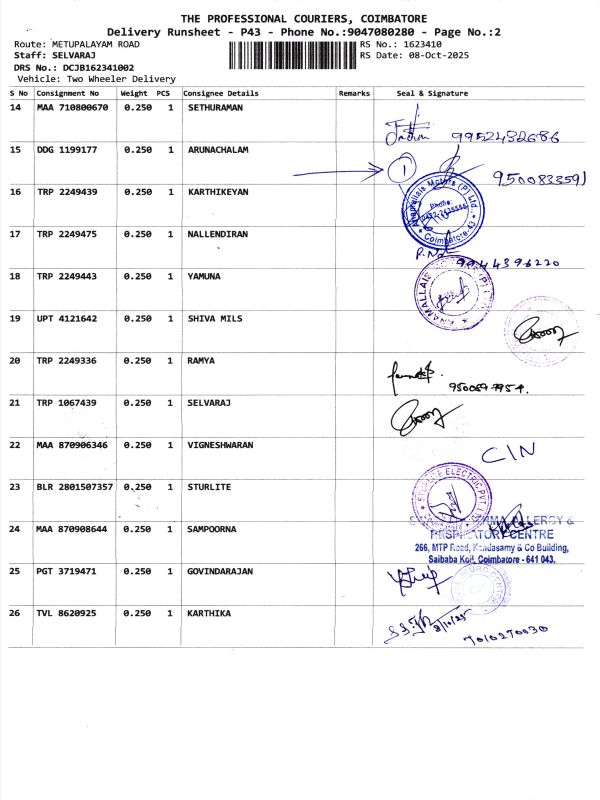 THE PROFESSIONAL COURIERS, COIMBATORE
Delivery Runsheet - P43 - Phone No.:9047080280 - Page No.:2
Route: METUPALAYAM ROAD RS No.: 1623410
Staff: SELVARAJ RS Date: 08-Oct-2025
DRS No.: DCJB162341002
Vehicle: Two Wheeler Delivery
S No Consignment No Weight PCS Consignee Details Remarks Seal & Signature
14 MAA 710800670 0.250 1 SETHURAMAN
9952432686
15 DDG 1199177 0.250 1 ARUNACHALAM
1
9500833591
16 TRP 2249439 0.250 1 KARTHIKEYAN
Motors (P) Ltd.
Phone:
Coimbatore-43
17 TRP 2249475 0.250 1 NALLENDIRAN
9944396220
18 TRP 2249443 0.250 1 YAMUNA
19 UPT 4121642 0.250 1 SHIVA MILS
20 TRP 2249336 0.250 1 RAMYA
21 TRP 1067439 0.250 1 SELVARAJ
22 MAA 870906346 0.250 1 VIGNESHWARAN
CIN
23 BLR 2801507357 0.250 1 STURLITE
ELECTRIC PVT. L
24 MAA 870908644 0.250 1 SAMPOORNA
ALLERGY &
RESPIRATORY CENTRE
266, MTP Road, Kandasamy & Co Building,
Saibaba Koil, Coimbatore - 641 043.
25 PGT 3719471 0.250 1 GOVINDARAJAN
26 TVL 8620925 0.250 1 KARTHIKA
8/10/25
7010270030